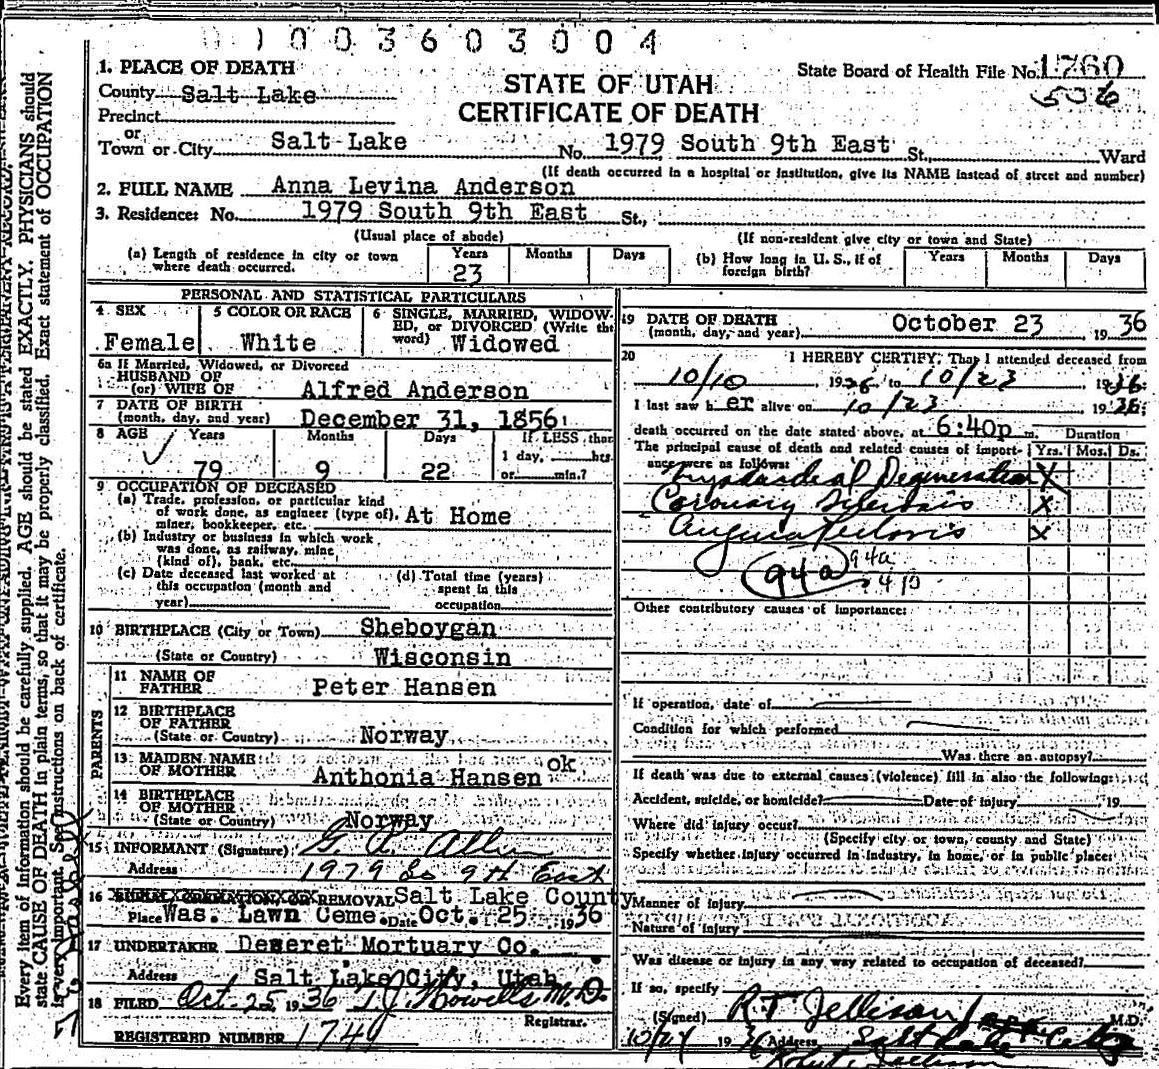 0 1 0 0 3 6 0 3 0 0 4
1. PLACE OF DEATH
State Board of Health File No. 1760
County Salt Lake
STATE OF UTAH
506
Precinct
CERTIFICATE OF DEATH
or
Town or City Salt Lake No. 1979 South 9th East St., Ward
(If death occurred in a hospital or institution, give its NAME instead of street and number)
2. FULL NAME Anna Levina Anderson
3. Residence: No. 1979 South 9th East St.,
(Usual place of abode) (If non-resident give city or town and State)
(a) Length of residence in city or town where death occurred. Years 23 Months Days
(b) How long in U. S., if of foreign birth? Years Months Days
PERSONAL AND STATISTICAL PARTICULARS
4 SEX Female
5 COLOR OR RACE White
6 SINGLE, MARRIED, WIDOW-
ED, or DIVORCED (Write the
word) Widowed
6a If Married, Widowed, or Divorced
HUSBAND OF
(or) WIFE OF Alfred Anderson
7 DATE OF BIRTH
(month, day, and year) December 31, 1856
8 AGE Years 79 Months 9 Days 22
If LESS than
1 day, hrs.
or min.?
9 OCCUPATION OF DECEASED
(a) Trade, profession, or particular kind
of work done, as engineer (type of), At Home
miner, bookkeeper, etc.
(b) Industry or business in which work
was done, as railway, mine
(kind of), bank, etc.
(c) Date deceased last worked at
this occupation (month and
year)
(d) Total time (years)
spent in this
occupation
10 BIRTHPLACE (City or Town) Sheboygan
(State or Country) Wisconsin
PARENTS
11 NAME OF
FATHER Peter Hansen
12 BIRTHPLACE
OF FATHER
(State or Country) Norway
13 MAIDEN NAME
OF MOTHER Anthonia Hansen ok
14 BIRTHPLACE
OF MOTHER
(State or Country) Norway
15 INFORMANT (Signature)
Address 1979 So 9th East
16 BURIAL, CREMATION, OR REMOVAL Salt Lake County
Place Was. Lawn Ceme. Date Oct. 25 1936
17 UNDERTAKER Deseret Mortuary Co.
Address Salt Lake City, Utah
18 FILED Oct-25, 1936 T.J. Howells M.D.
Registrar.
REGISTERED NUMBER 1749
19 DATE OF DEATH
(month, day, and year) October 23 1936
20 I HEREBY CERTIFY, That I attended deceased from
10/10, 1936 to 10/23 1936
I last saw her alive on 10/23 1936;
death occurred on the date stated above, at 6:40p m. Duration
The principal cause of death and related causes of import-
ance were as follows: Yrs. Mos. Ds.
Myocardial Degeneration X
Coronary Sclerosis X
Angina Pectoris X
94a 94a
Other contributory causes of importance:
If operation, date of
Condition for which performed
Was there an autopsy?
If death was due to external causes (violence) fill in also the following:
Accident, suicide, or homicide? Date of injury 19
Where did injury occur?
(Specify city or town, county and State)
Specify whether injury occurred in industry, in home, or in public place:
Manner of injury
Nature of injury
Was disease or injury in any way related to occupation of deceased?
If so, specify
(Signed) R T Jellison M.D.
10/24 1936 Address Salt Lake City
Every item of information should be carefully supplied. AGE should be stated EXACTLY. PHYSICIANS should
state CAUSE OF DEATH in plain terms, so that it may be properly classified. Exact statement of OCCUPATION
is very important. See instructions on back of certificate.